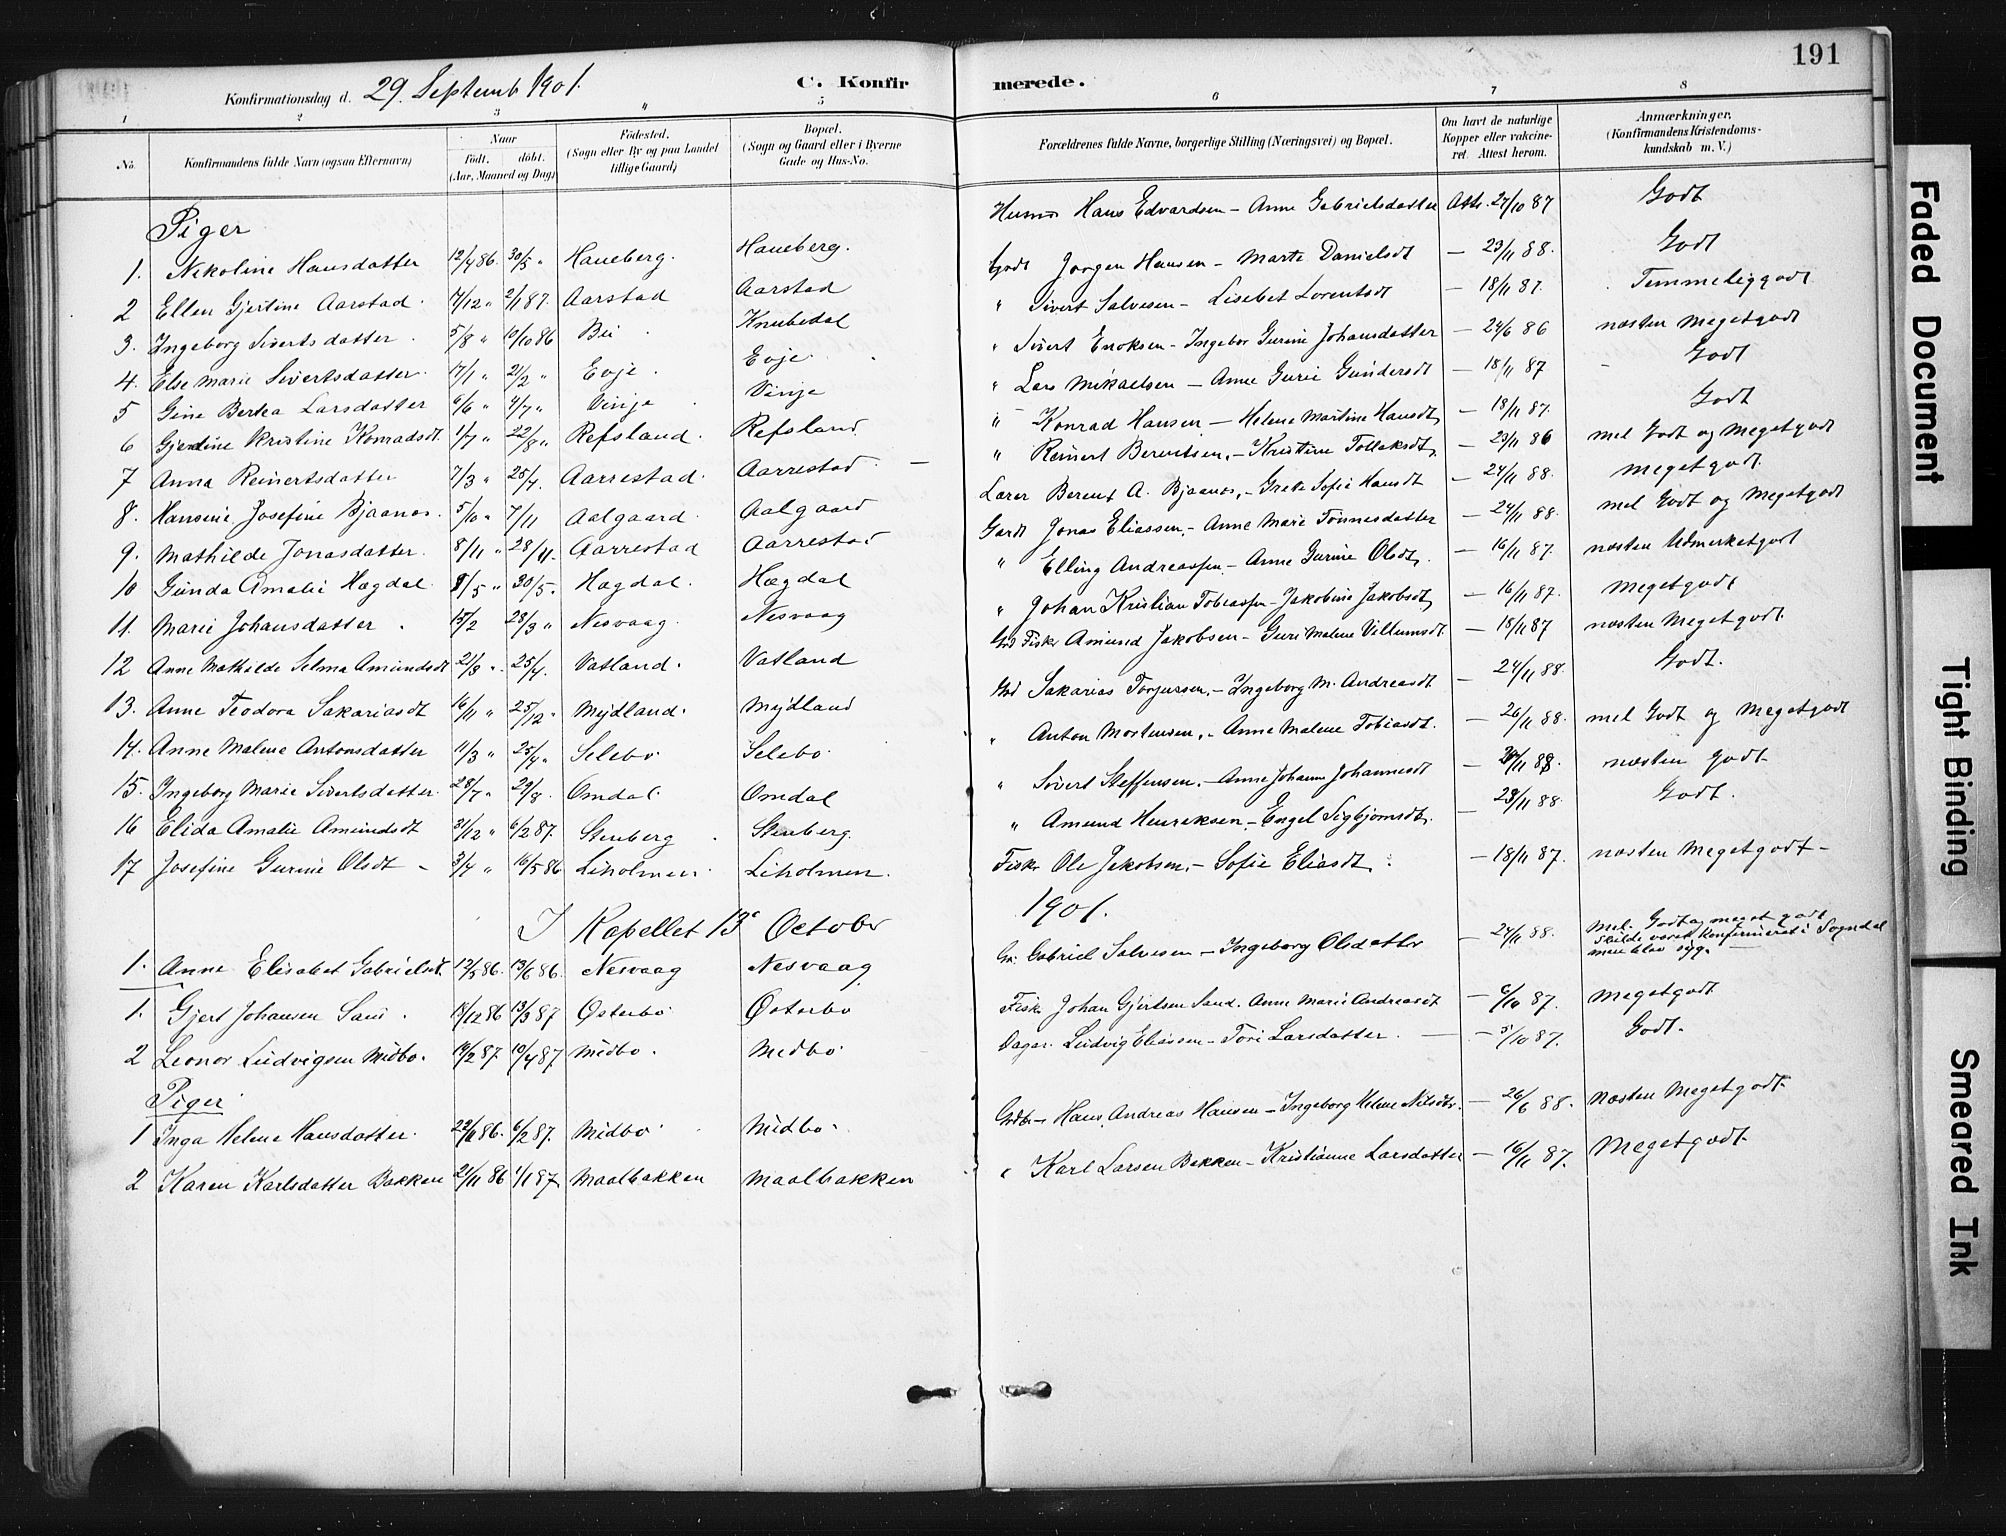 191
Konfirmationsdag d. 29. Septemb 1901. C. Konfirmerede.
1 2 3 " 5 6 7 8
No. Konfirmandens fulde Navn (ogsaa Efternavn) Naar født. døbt. (Aar, Maaned og Dag) Fødested. (Sogn eller By og paa Landet tillige Gaard) Bopæl. (Sogn og Gaard eller i Byerne Gade og Hus-No. Forældrenes fulde Navne, borgerlige Stilling (Næringsvei) og Bopæl. Om havt de naturlige Kopper eller vakcineret. Attest herom. Anmærkninger. (Konfirmandens Kristendomskundskab m. V.)
Piger
1. Nikoline Hansdatter 12/4 86. 30/5 " Haneberg. Haneberg. Husm Hans Edvardsen - Anne Gabrielsdatter Att. 27/10 87 Godt
2 Ellen Gjertine Aarstad. 17/12 " 2/1 87. Aarstad Aarstad Gdr Jørgen Hansen - Marte Danielsdt - 23/11 88. Godt
3. Ingeborg Sivertsdatter. 5/8 " 10/10 86 Bu Knubedal " Sivert Salvesen - Lisebet Lorentsdt - 18/11 87. Temmeliggodt
4. Else Marie Sivertsdatter. 17/1 " 21/2 " Evje. Evje. " Sivert Enoksen - Ingebor Gurine Johansdatter - 24/6 86 næsten Megetgodt
5 Gine Bertea Larsdatter 6/6 " 4/7 " Vinje. Vinje " Lars Mikaelsen - Anne Gurie Gundersdt - 18/11 87 Godt
6 Gjertine Kristine Konradsdt. 1/7 " 22/8 " Refsland. Refsland. " Konrad Hansen - Helene Martine Hansdt, - 18/11 87. Godt
7 Anna Reinertsdatter 7/3 " 25/4. Aarrestad. Aarrestad. - " Reinert Berentsen, - Kristine Tollaksdt, - 23/11 86 mel Godt og Megetgodt
8. Hansine Josefine Bjaanes. 5/10 " 7/11 Aalgaard. Aalgaard Lærer Berent A. Bjaanes, - Grete Sofie Hansdt - 24/11 88. Megetgodt.
9. Mathilde Jonasdatter. 8/11 " 28/11. Aarrestad Aarrestad Gardt Jonas Eliassen, - Anne Marie Tønnesdatter - 24/11 88. mel Godt og Megetgodt
10 Gunda Amalie Hægdal. 8/5 " 30/5. Hægdal. Hægdal " Elling Andreassen - Anne Gurine Olsdt, - 16/11 87. næsten Udmerketgodt
11. Marie Johansdatter. 15/2 28/3 " Nesvaag. Nesvaag " Johan Kristian Tobiassen - Jakobine Jakobsdt, - 16/11 87. Megetgodt
12 Anne Mathilde Selma Amundsdt 21/3 " 25/4. Vatland. Vatland Grd Fisker Amund Jakobsen - Guri Malene Villumsdt. - 18/11 87 næsten Megetgodt.
13. Anne Teodora Sakariasdt 16/11 " 25/12 " Mydland. Mydland Grd Sakarias Torjussen, - Ingeborg M. Andreasdt - 24/11 88. Godt.
14. Anne Malene Antonsdatter 11/3 " 25/4 " Selebø Selebø " Anton Mortensen, - Anne Malene Tobiasdt. - 26/11 88. mel Godt og Megetgodt
15. Ingeborg Marie Sivertsdatter. 28/7 " 29/8. Omdal. Omdal " Sivert Steffensen, - Anne Johanne Johannesdt - 11 88. næsten godt
16 Elida Amalie Amundsdt 31/12 " 6/2 87. Stenberg Stenberg. " Amund Henriksen, Engel Sigbjørnsdt. - 23/11 88. Godt.
17 Josefine Gurine Olsdt - 3/4 " 16/5 86 Liholmen. Liholmen. Fisker Ole Jakobsen, - Sofie Eliasdt, - 18/11 87. næsten Megetgodt -
I Kapellet 13e Octobr 1901.
1. Anne Elisabet Gabrielsdt. 12/5 86. 13/6 86. Nesvaag Nesvaag Gr. Gabriel Salvesen - Ingeborg Olsdatter - 24/11 88. Mel. Godt og meget godt
Skulde været konfirmeret i Sogndal
men blev syg.
1. Gjert Johansen Sand. 19/12 86 13/3 87 Østerbø Østerbø Fisk Johan Gjertsen Sand. Anne Marie Andreasdt - 6/10 87. Megetgodt
2 Leonor Ludvigsen Midbø. 14/2 87. 10/4 87 Midbø. Midbø Dagar. Ludvig Eliassen - Tori Larsdatter. - 5/10 87. Godt.
Piger
1 Inga Helene Hansdatter. 22/11 86. 6/2 87. Midbø Midbø. Gdbr - Hans Andreas Hansen - Ingeborg Helene Nilsdtr. - 26/6 88. Næsten Megetgodt.
2 Karen Karlsdatter Bakken 21/11 86 1/1 87 Maalbakken Maalbakken " Karl Larsen Bakken - Kristianne Larsdatter - 16/11 87. Megetgodt.
Faded Document
Tight Binding
Smeared Ink